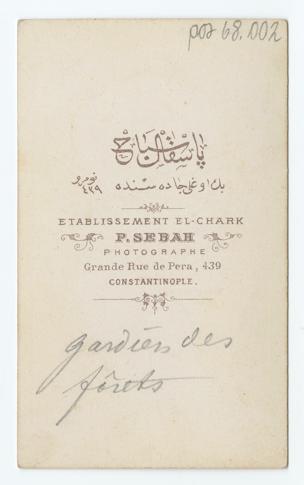 poz 68.002
پاسقال صباح
بك اوغلی جاده سنده نومرو ٤٣٩
ETABLISSEMENT EL-CHARK
P. SEBAH
PHOTOGRAPHE
Grande Rue de Pera, 439
CONSTANTINOPLE.
gardiens des
fôrets